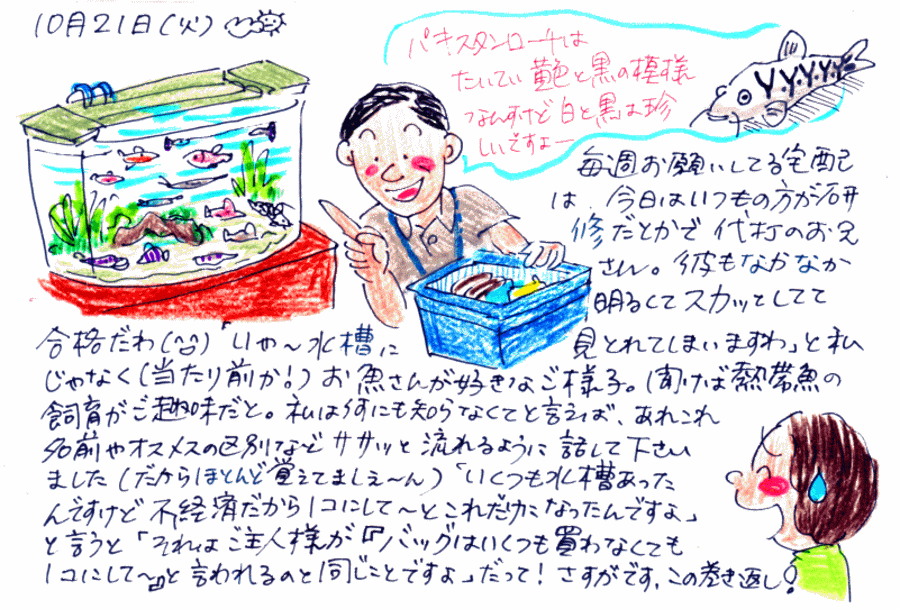 10月21日(火)
パキスタンローチは
たいてい黄色と黒の模様
なんすけど白と黒は珍
しいですよー
毎週お願いしてる宅配
は、今日はいつもの方が研
修だとかで代打のお兄
さん。彼もなかなか
明るくてスカッとしてて
合格だわ(^^)「いや〜水槽に
見とれてしまいますわ」と私
じゃなく(当たり前か!)お魚さんが好きなご様子。聞けば熱帯魚の
飼育がご趣味だと。私は何にも知らなくてと言えば、あれこれ
名前やオスメスの区別などササッと流れるように話して下さい
ました(だからほとんど覚えてましぇ〜ん)「いくつも水槽あった
んですけど不経済だから1コにして〜とこれだけになったんですよ」
と言うと「それはご主人様が『バッグはいくつも買わなくても
1コにして〜』と言われるのと同じことですよ」だって!さすがです、この巻き返し!